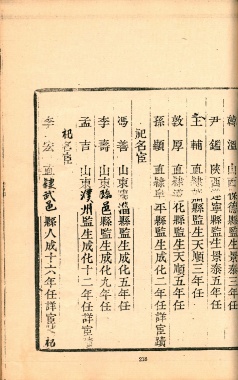 韓溫山西保德縣監生景泰五年任
尹鑑陝西咸寧縣監生景泰五年任
王輔直隸縣監生天順三年任
敦厚直隸化縣監生天順五年任
孫顯直隸平縣監生成化二年任詳宦蹟
祀名宦
馮善山東臨淄縣監生成化五年任
李壽山東臨邑縣監生成化九年任
孟吉山東濮州監生成化十二年任詳宦蹟
祀名宦
李宏直隸武邑縣人成化十六年任詳宦蹟祀
238